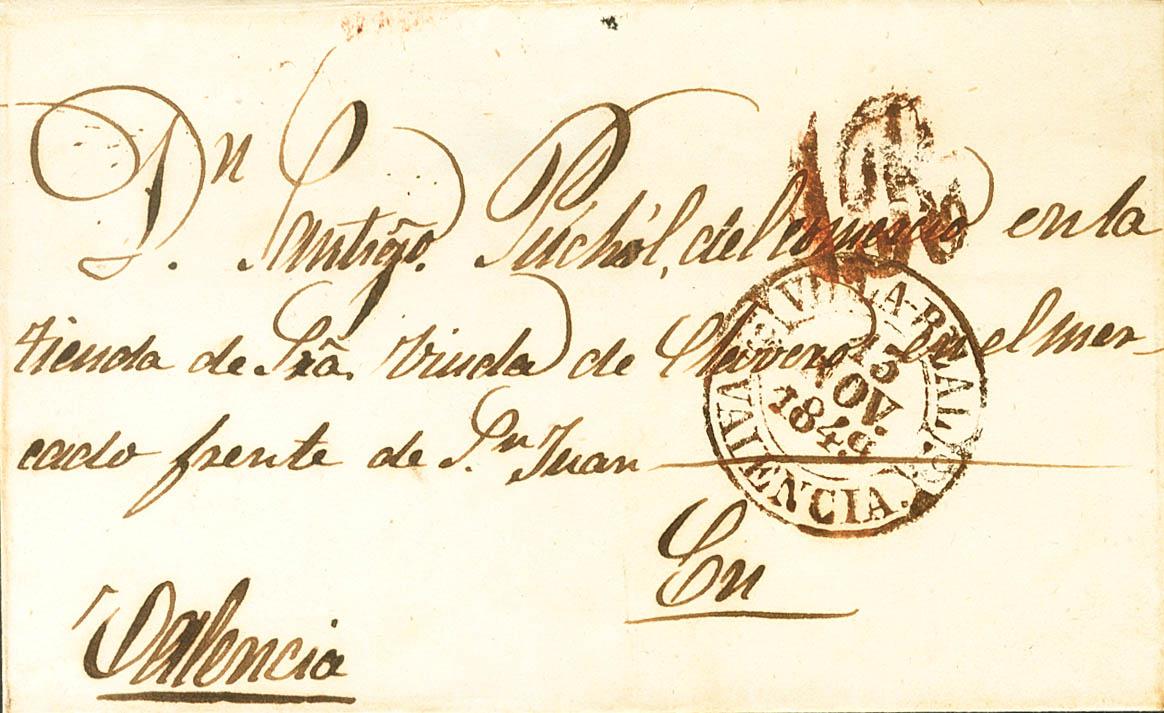 Dn. Santigo. Puchol, del comercio en la
tienda de Sra. Viuda de Claveros en el mer-
cado frente de Sn Juan
En
Valencia
VILLA-REAL.
15
NOV.
1849
VALENCIA.